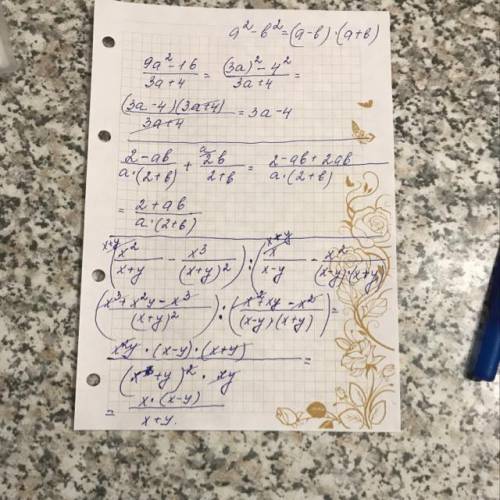 a² - b² = (a-b)·(a+b)
(9a² - 16)/(3a+4) = ((3a)² - 4²)/(3a+4) =
((3a-4)(3a+4))/(3a+4) = 3a-4
(2-ab)/(a·(2+b)) + (2b)/(2+b) = (2-ab+2ab)/(a·(2+b))
= (2+ab)/(a·(2+b))
(x²/(x+y) - x³/(x+y)²) : (x/(x-y) - x²/((x-y)·(x+y)))
((x³+x²y-x³)/(x+y)²) : ((x²+xy-x²)/((x-y)(x+y))) =
(x²y·(x-y)·(x+y))/((x+y)²·xy) =
= (x·(x-y))/(x+y).